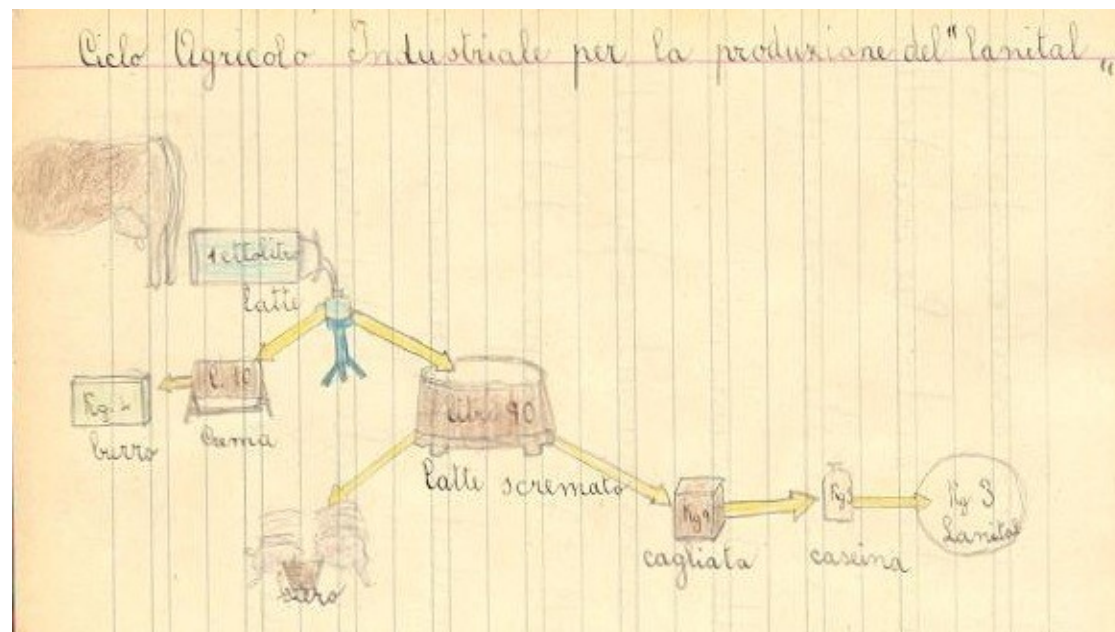 Ciclo Agricolo Industriale per la produzione del "Lanital"
1 ettolitro
latte
l. 10
Kg. 2
burro
Crema
litri 90
latte scremato
Kg 9
cagliata
Kg 3
caseina
Kg 3
Lanital
siero